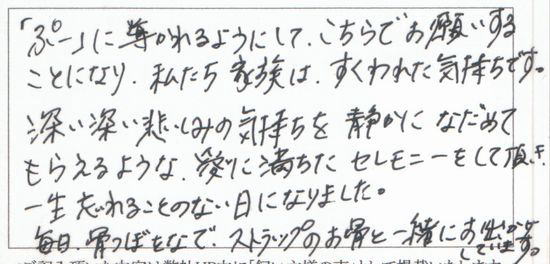 「ぷー」に導かれるようにして、こちらでお願いする
ことになり、私たち家族は、すくわれた気持ちです。
深い深い悲しみの気持ちを静かになだめて
もらえるような、愛に満ちたセレモニーをして頂き、
一生忘れることのない日になりました。
毎日、骨つぼをなで、ストラップのお骨と一緒にお出かけ
しています。